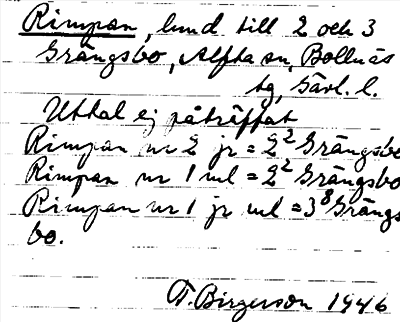 Rimpan, lund till 2 och 3
Grängsbo, Alfta sn, Bollnäs
tg, Gävl. l.
Uttal ej påträffat
Rimpan nr 2 jr = 2² Grängsbo
Rimpan nr 1 ml = 2² Grängsbo
Rimpan nr 1 jr ml = 3⁸ Grängs
bo.
T. Birgerson 1946